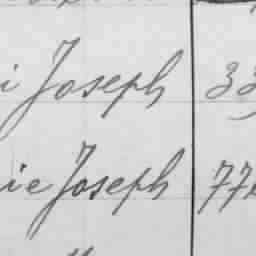 i Joseph 33
ie Joseph 77